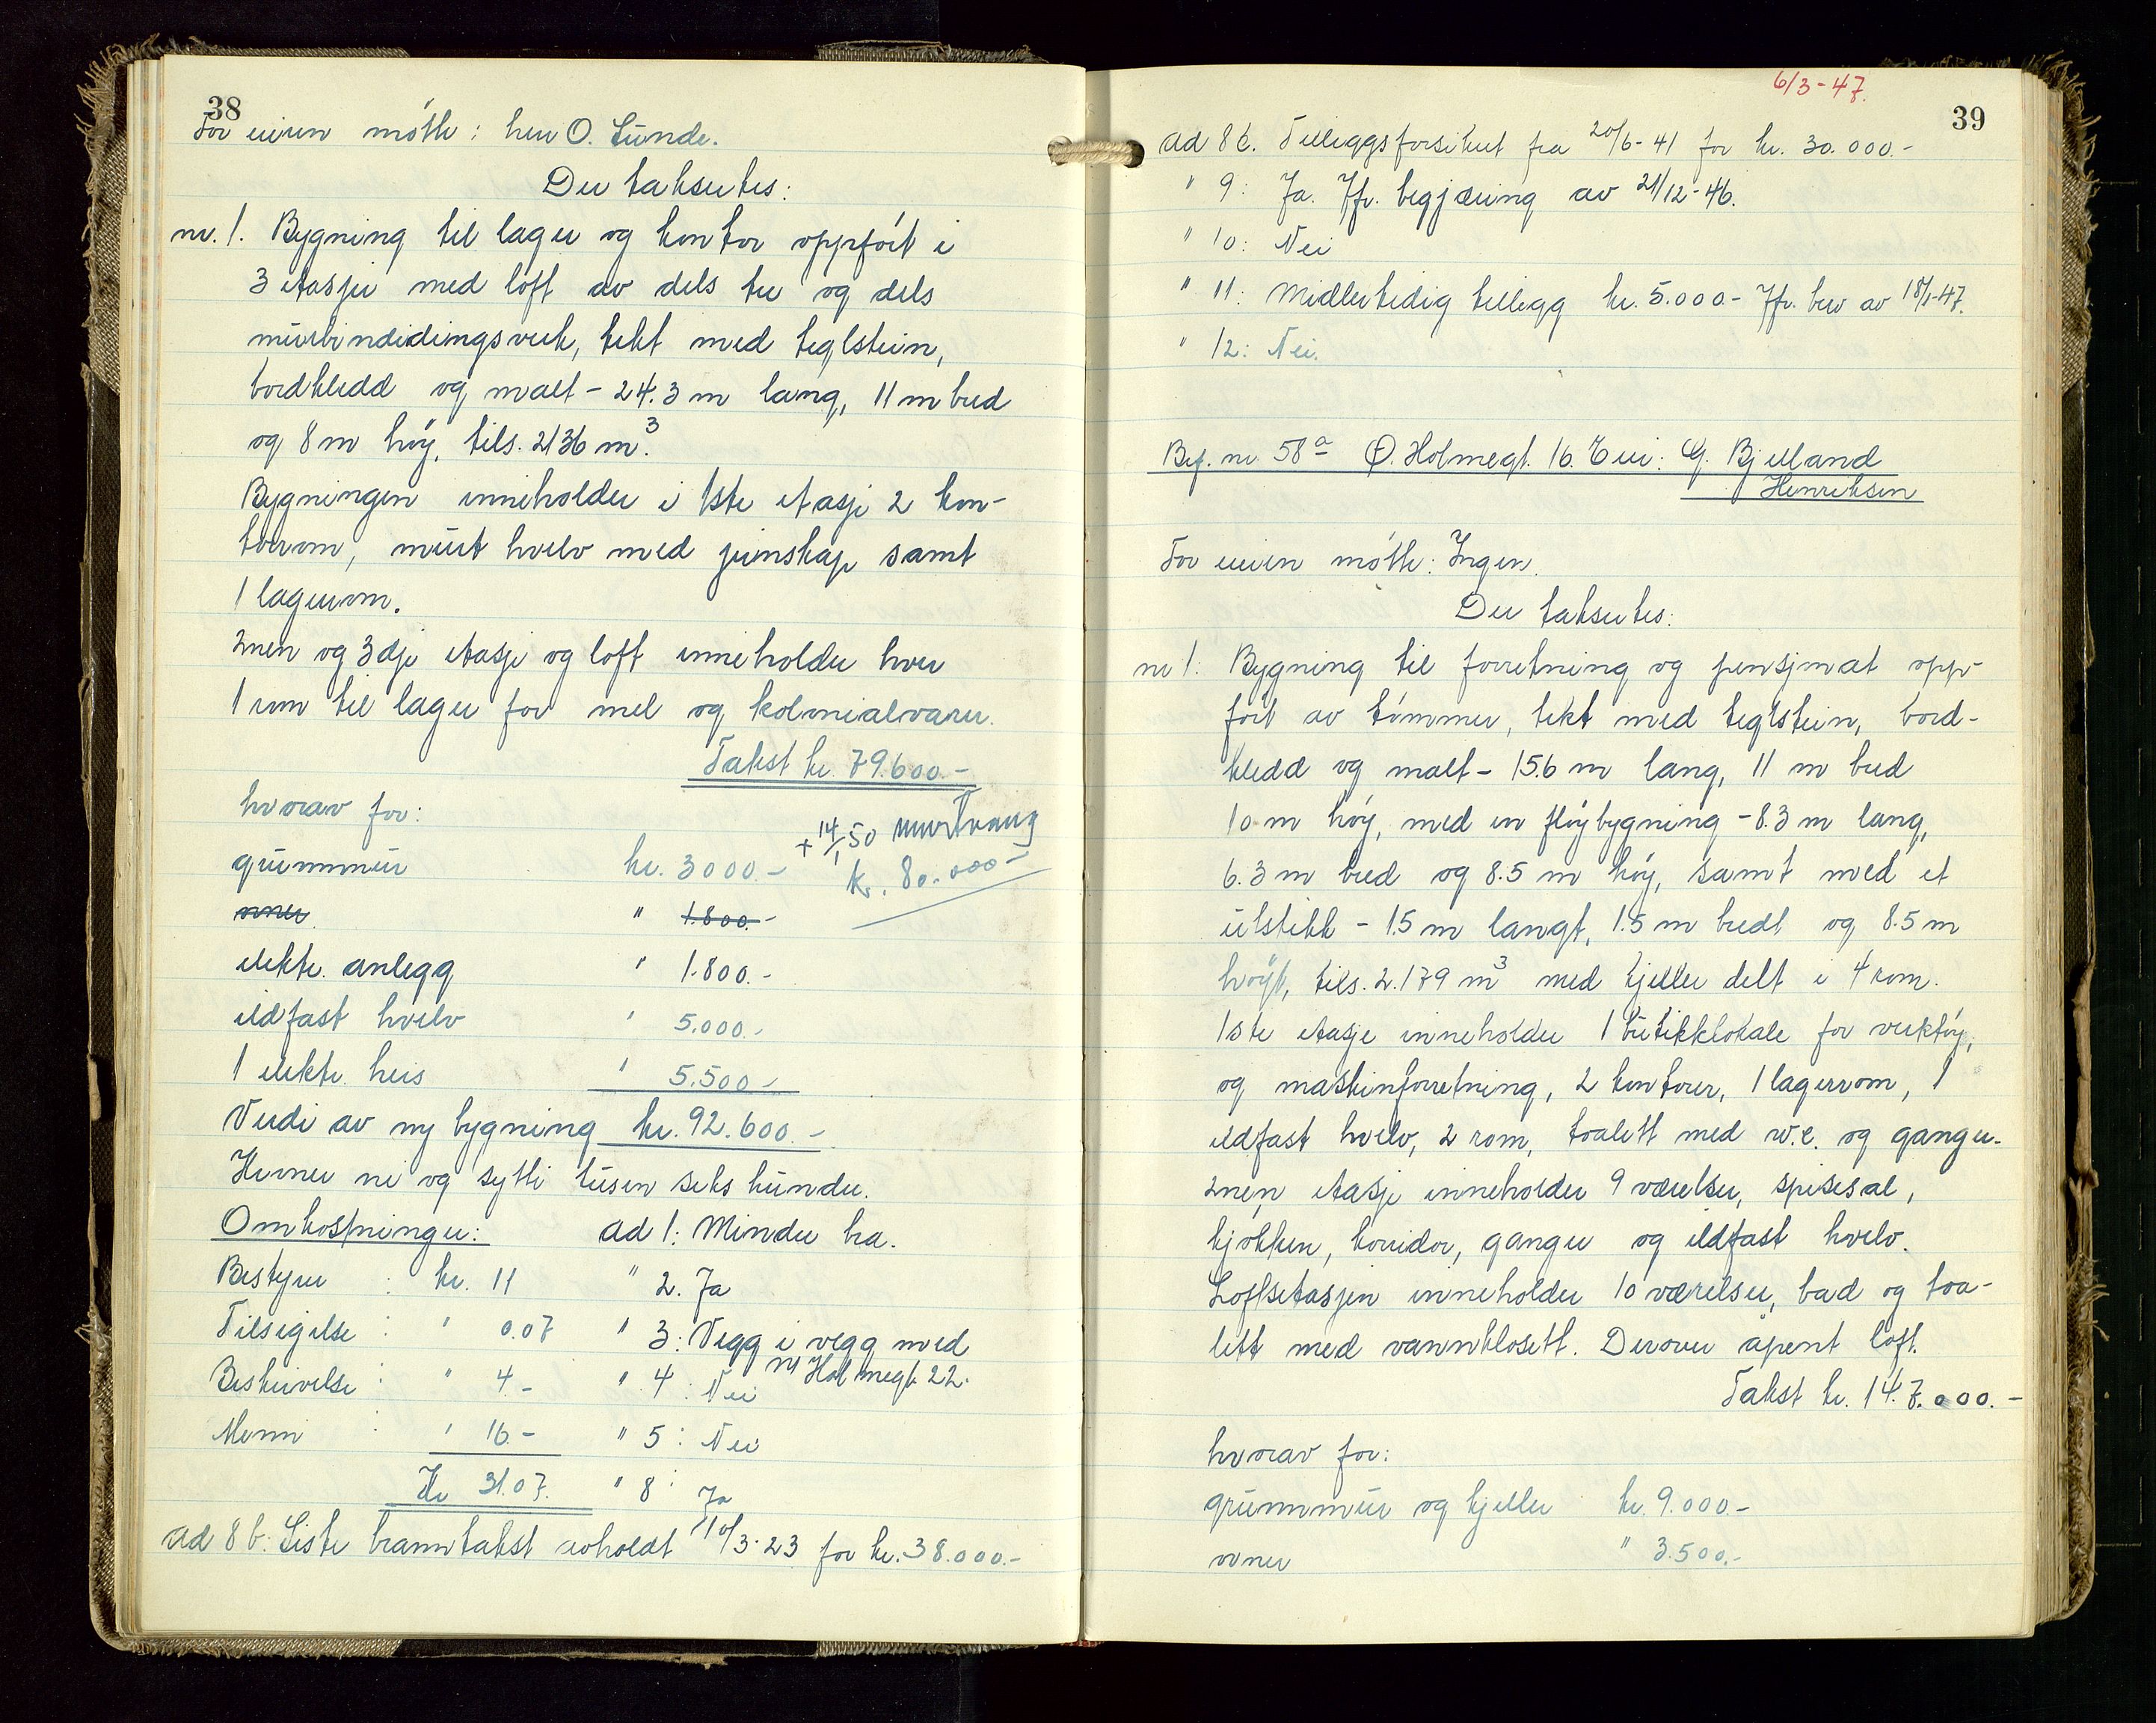 38
For eieren møtte: herr O. Lunde.
Der taksertes:
nr. 1. Bygning til lager og kontor oppført i
3 etasjer med loft av dels tre og dels
murbindidingsverk, tekt med teglstein,
bordkledd og malt - 24.3 m lang, 11 m bred
og 8 m høy, tils. 2136 m³.
Bygningen inneholder i 1ste etasje 2 kon-
torrom, murt hvelv med jernskap samt
1 lagerrom.
2nen og 3dje etasje og loft inneholder hver
1 rom til lager for mel og kolonialvarer.
Takst kr. 79.600.-
hvorav for:
+ 14/1 50 murtvang
kr. 80.000-
grunnmur kr. 3000.-
ovner. " 1.800.-
elektr. anlegg " 1.800.-
ildfast hvelv " 5.000.-
1 elektr. heis " 5.500.-
Verdi av ny bygning kr. 92.600.-
Kroner ni og sytti tusen seks hundre.
Omkostninger: ad 1: Mindre bra.
Bestyrer : kr. 11 " 2. Ja
Tilsigelse : " 0.07 " 3: Vegg i vegg med
Ny Holmegt. 22.
Beskrivelse : " 4.- " 4: Nei
Menn : " 16.- " 5: Nei
Kr 31.07. " 8: Ja
ad 8 b: Siste branntakst avholdt 10/3-23 for kr. 38.000.-
6/3-47.
39
ad 8 c. Tilleggsforsikret fra 20/6-41 for kr. 30.000.-
" 9: Ja. Jfr. begjæring av 21/12-46.
" 10: Nei
" 11: Midlertidig tillegg kr. 5.000.- Jfr. brev av 18/1-47.
" 12: Nei.
Bef. nr. 58a Ø. Holmegt. 16. Eier: G. Bjelland
Henriksen
For eieren møtte: Ingen.
Der taksertes:
nr 1: Bygning til forretning og pensjonat opp-
ført av tømmer, tekt med teglstein, bord-
kledd og malt - 15.6 m lang, 11 m bred
10 m høy, med en fløybygning - 8.3 m lang,
6.3 m bred og 8.5 m høy, samt med et
utstikk - 1.5 m langt, 1.5 m bredt og 8.5 m
høyt, tils. 2.179 m³ med kjeller delt i 4 rom.
1ste etasje inneholder 1 butikklokale for verktøy,
og maskinforretning, 2 kontorer, 1 lagerrom, 1
ildfast hvelv, 2 rom, toalett med w.c. og ganger.
2nen etasje inneholder 9 værelser, spisesal,
kjøkken, korridor, ganger og ildfast hvelv.
Loftsetasjen inneholder 10 værelser, bad og toa-
lett med vannklosett. Derover åpent loft.
Takst kr. 147.000.-
hvorav for:
grunnmur og kjeller kr. 9.000.-
ovner " 3.500.-